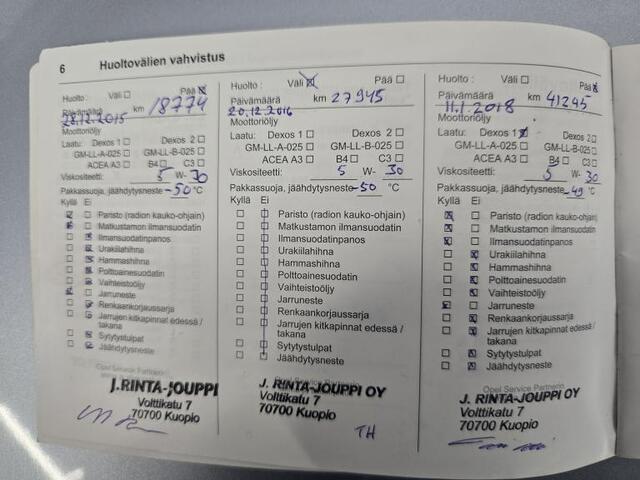 6 Huoltovälien vahvistus
Huolto : Väli ☐ Pää ☒
Päivämäärä km 18774
28.12.2015
Moottoriöljy
Laatu: Dexos 1 ☐ Dexos 2 ☐
GM-LL-A-025 ☐ GM-LL-B-025 ☐
ACEA A3 ☐ B4 ☐ C3 ☐
Viskositeetti: 5 W- 30
Pakkassuoja, jäähdytysneste -50 °C
Kyllä Ei
Paristo (radion kauko-ohjain)
Matkustamon ilmansuodatin
Ilmansuodatinpanos
Urakiilahihna
Hammashihna
Polttoainesuodatin
Vaihteistoöljy
Jarruneste
Renkaankorjaussarja
Jarrujen kitkapinnat edessä /
takana
Sytytystulpat
Jäähdytysneste
Opel Service Partnerin
J.RINTA-JOUPPI
Volttikatu 7
70700 Kuopio
Huolto : Väli ☒ Pää ☐
Päivämäärä km 27945
20.12.2016
Moottoriöljy
Laatu: Dexos 1 ☐ Dexos 2 ☐
GM-LL-A-025 ☐ GM-LL-B-025 ☐
ACEA A3 ☐ B4 ☐ C3 ☐
Viskositeetti: 5 W- 30
Pakkassuoja, jäähdytysneste -50 °C
Kyllä Ei
Paristo (radion kauko-ohjain)
Matkustamon ilmansuodatin
Ilmansuodatinpanos
Urakiilahihna
Hammashihna
Polttoainesuodatin
Vaihteistoöljy
Jarruneste
Renkaankorjaussarja
Jarrujen kitkapinnat edessä /
takana
Sytytystulpat
Jäähdytysneste
J. RINTA-JOUPPI OY
Volttikatu 7
70700 Kuopio
TH
Huolto : Väli ☐ Pää ☒
Päivämäärä km 41245
11.1.2018
Moottoriöljy
Laatu: Dexos 1 ☒ Dexos 2 ☐
GM-LL-A-025 ☐ GM-LL-B-025 ☐
ACEA A3 ☐ B4 ☐ C3 ☐
Viskositeetti: 5 W- 30
Pakkassuoja, jäähdytysneste -49 °C
Kyllä Ei
Paristo (radion kauko-ohjain)
Matkustamon ilmansuodatin
Ilmansuodatinpanos
Urakiilahihna
Hammashihna
Polttoainesuodatin
Vaihteistoöljy
Jarruneste
Renkaankorjaussarja
Jarrujen kitkapinnat edessä /
takana
Sytytystulpat
Jäähdytysneste
Opel Service Partnerin
J. RINTA-JOUPPI OY
Volttikatu 7
70700 Kuopio